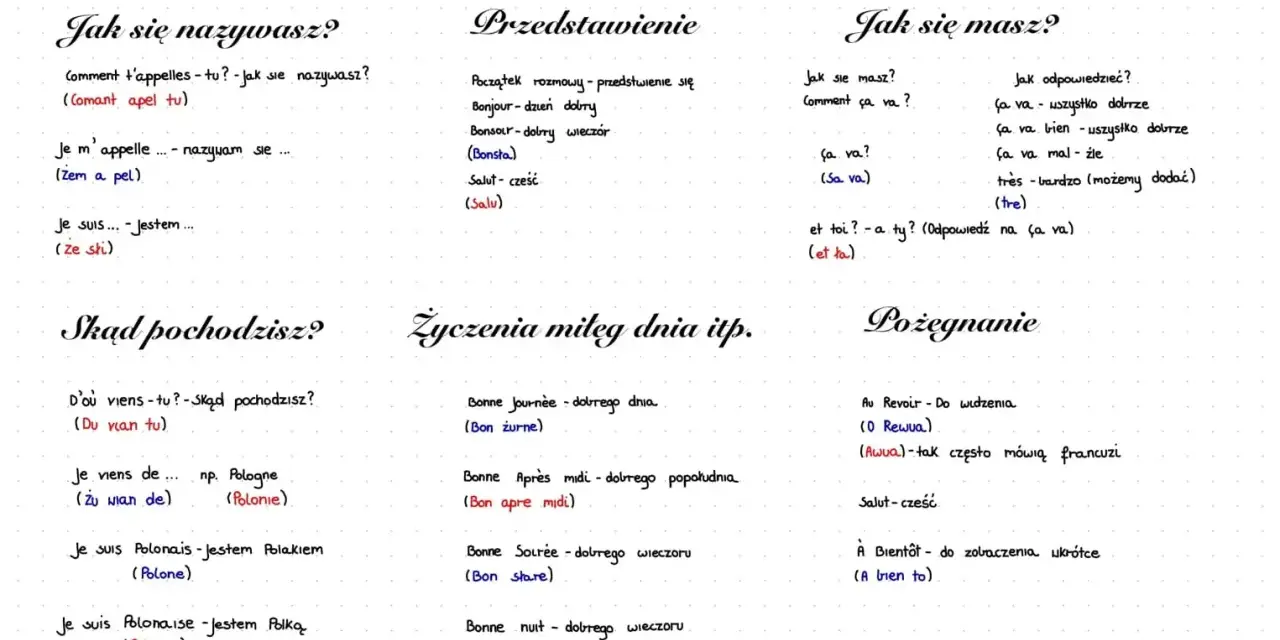 Jak się nazywasz?
Comment t'appelles - tu? - Jak sie nazywasz?
(Comant apel tu)
Je m'appelle ... - nazywam sie ...
(Żem a pel)
Je suis... - Jestem...
(że słi)
Przedstawienie
Początek rozmowy - przedstwienie się
Bonjour - dzień dobry
Bonsoir - dobry wieczór
(Bonsła)
Salut - cześć
(Salu)
Jak się masz?
Jak sie masz?
Comment ça va?
ça va?
(Sa va)
Jak odpowiedzieć?
ça va - wszystko dobrze
ça va bien - wszystko dobrze
ça va mal - źle
très - bardzo (możemy dodać)
(tre)
et toi? - a ty? (Odpowiedź na ça va)
(et ła)
Skąd pochodzisz?
D'où viens - tu? - Skąd pochodzisz?
(Du vian tu)
Je viens de ... np. Pologne
(Żu wian de) (Polonie)
Je suis Polonais - Jestem Polakiem
(Polone)
Je suis Polonaise - Jestem Polką
Życzenia miłeg dnia itp.
Bonne Journèe - dobrego dnia
(Bon żurne)
Bonne Après midi - dobrego popołudnia
(Bon apre midi)
Bonne Soirèe - dobrego wieczoru
(Bon słare)
Bonne nuit - dobrego wieczoru
Pożegnanie
Au Revoir - Do widzenia
(O Rewua)
(Awua) - tak często mówią francuzi
Salut - cześć
À Bientôt - do zobaczenia wkrótce
(A bien to)